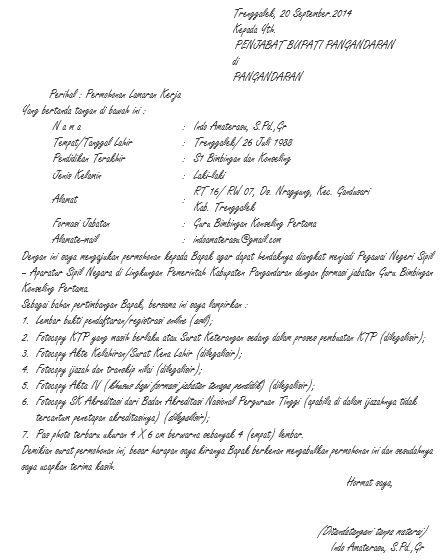 Trenggalek, 20 September.2014
Kepada Yth.
PENJABAT BUPATI PANGANDARAN
di
PANGANDARAN
Perihal : Permohonan Lamaran Kerja
Yang bertanda tangan di bawah ini :
N a m a : Indo Amaterasu, S.Pd.,Gr
Tempat/Tanggal Lahir : Trenggalek/ 26 Juli 1988
Pendidikan Terakhir : S1 Bimbingan dan Konseling
Jenis Kelamin : Laki-laki
Alamat : RT 16/ RW 07, Ds. Nraggung, Kec. Gandusari
Kab. Trenggalek
Formasi Jabatan : Guru Bimbingan Konseling Pertama
Alamate-mail : indoamaterasu@gmail.com
Dengan ini saya mengajukan permohonan kepada Bapak agar dapat hendaknya diangkat menjadi Pegawai Negeri Sipil
– Aparatur Sipil Negara di Lingkungan Pemerintah Kabupaten Pangandaran dengan formasi jabatan Guru Bimbingan
Konseling Pertama
Sebagai bahan pertimbangan Bapak, bersama ini saya lampirkan :
1. Lembar bukti pendaftaran/registrasi online (asli);
2. Fotocopy KTP yang masih berlaku atau Surat Keterangan sedang dalam proses pembuatan KTP (dilegalisir);
3. Fotocopy Akte Kelahiran/Surat Kena Lahir (dilegalisir);
4. Fotocopy ijazah dan transkip nilai (dilegalisir);
5. Fotocopy Akta IV (khusus bagi formasi jabatan tenaga pendidik) (dilegalisir);
6. Fotocopy SK Akreditasi dari Badan Akreditasi Nasional Perguruan Tinggi (apabila di dalam ijazahnya tidak
tercantum penetapan akreditasinya) (dilegalisir);
7. Pas photo terbaru ukuran 4 X 6 cm berwarna sebanyak 4 (empat) lembar.
Demikian surat permohonan ini, besar harapan saya kiranya Bapak berkenan mengabulkan permohonan ini dan sesudahnya
saya ucapkan terima kasih.
Hormat saya,
(Ditandatangani tanpa materai)
Indo Amaterasu, S.Pd.,Gr